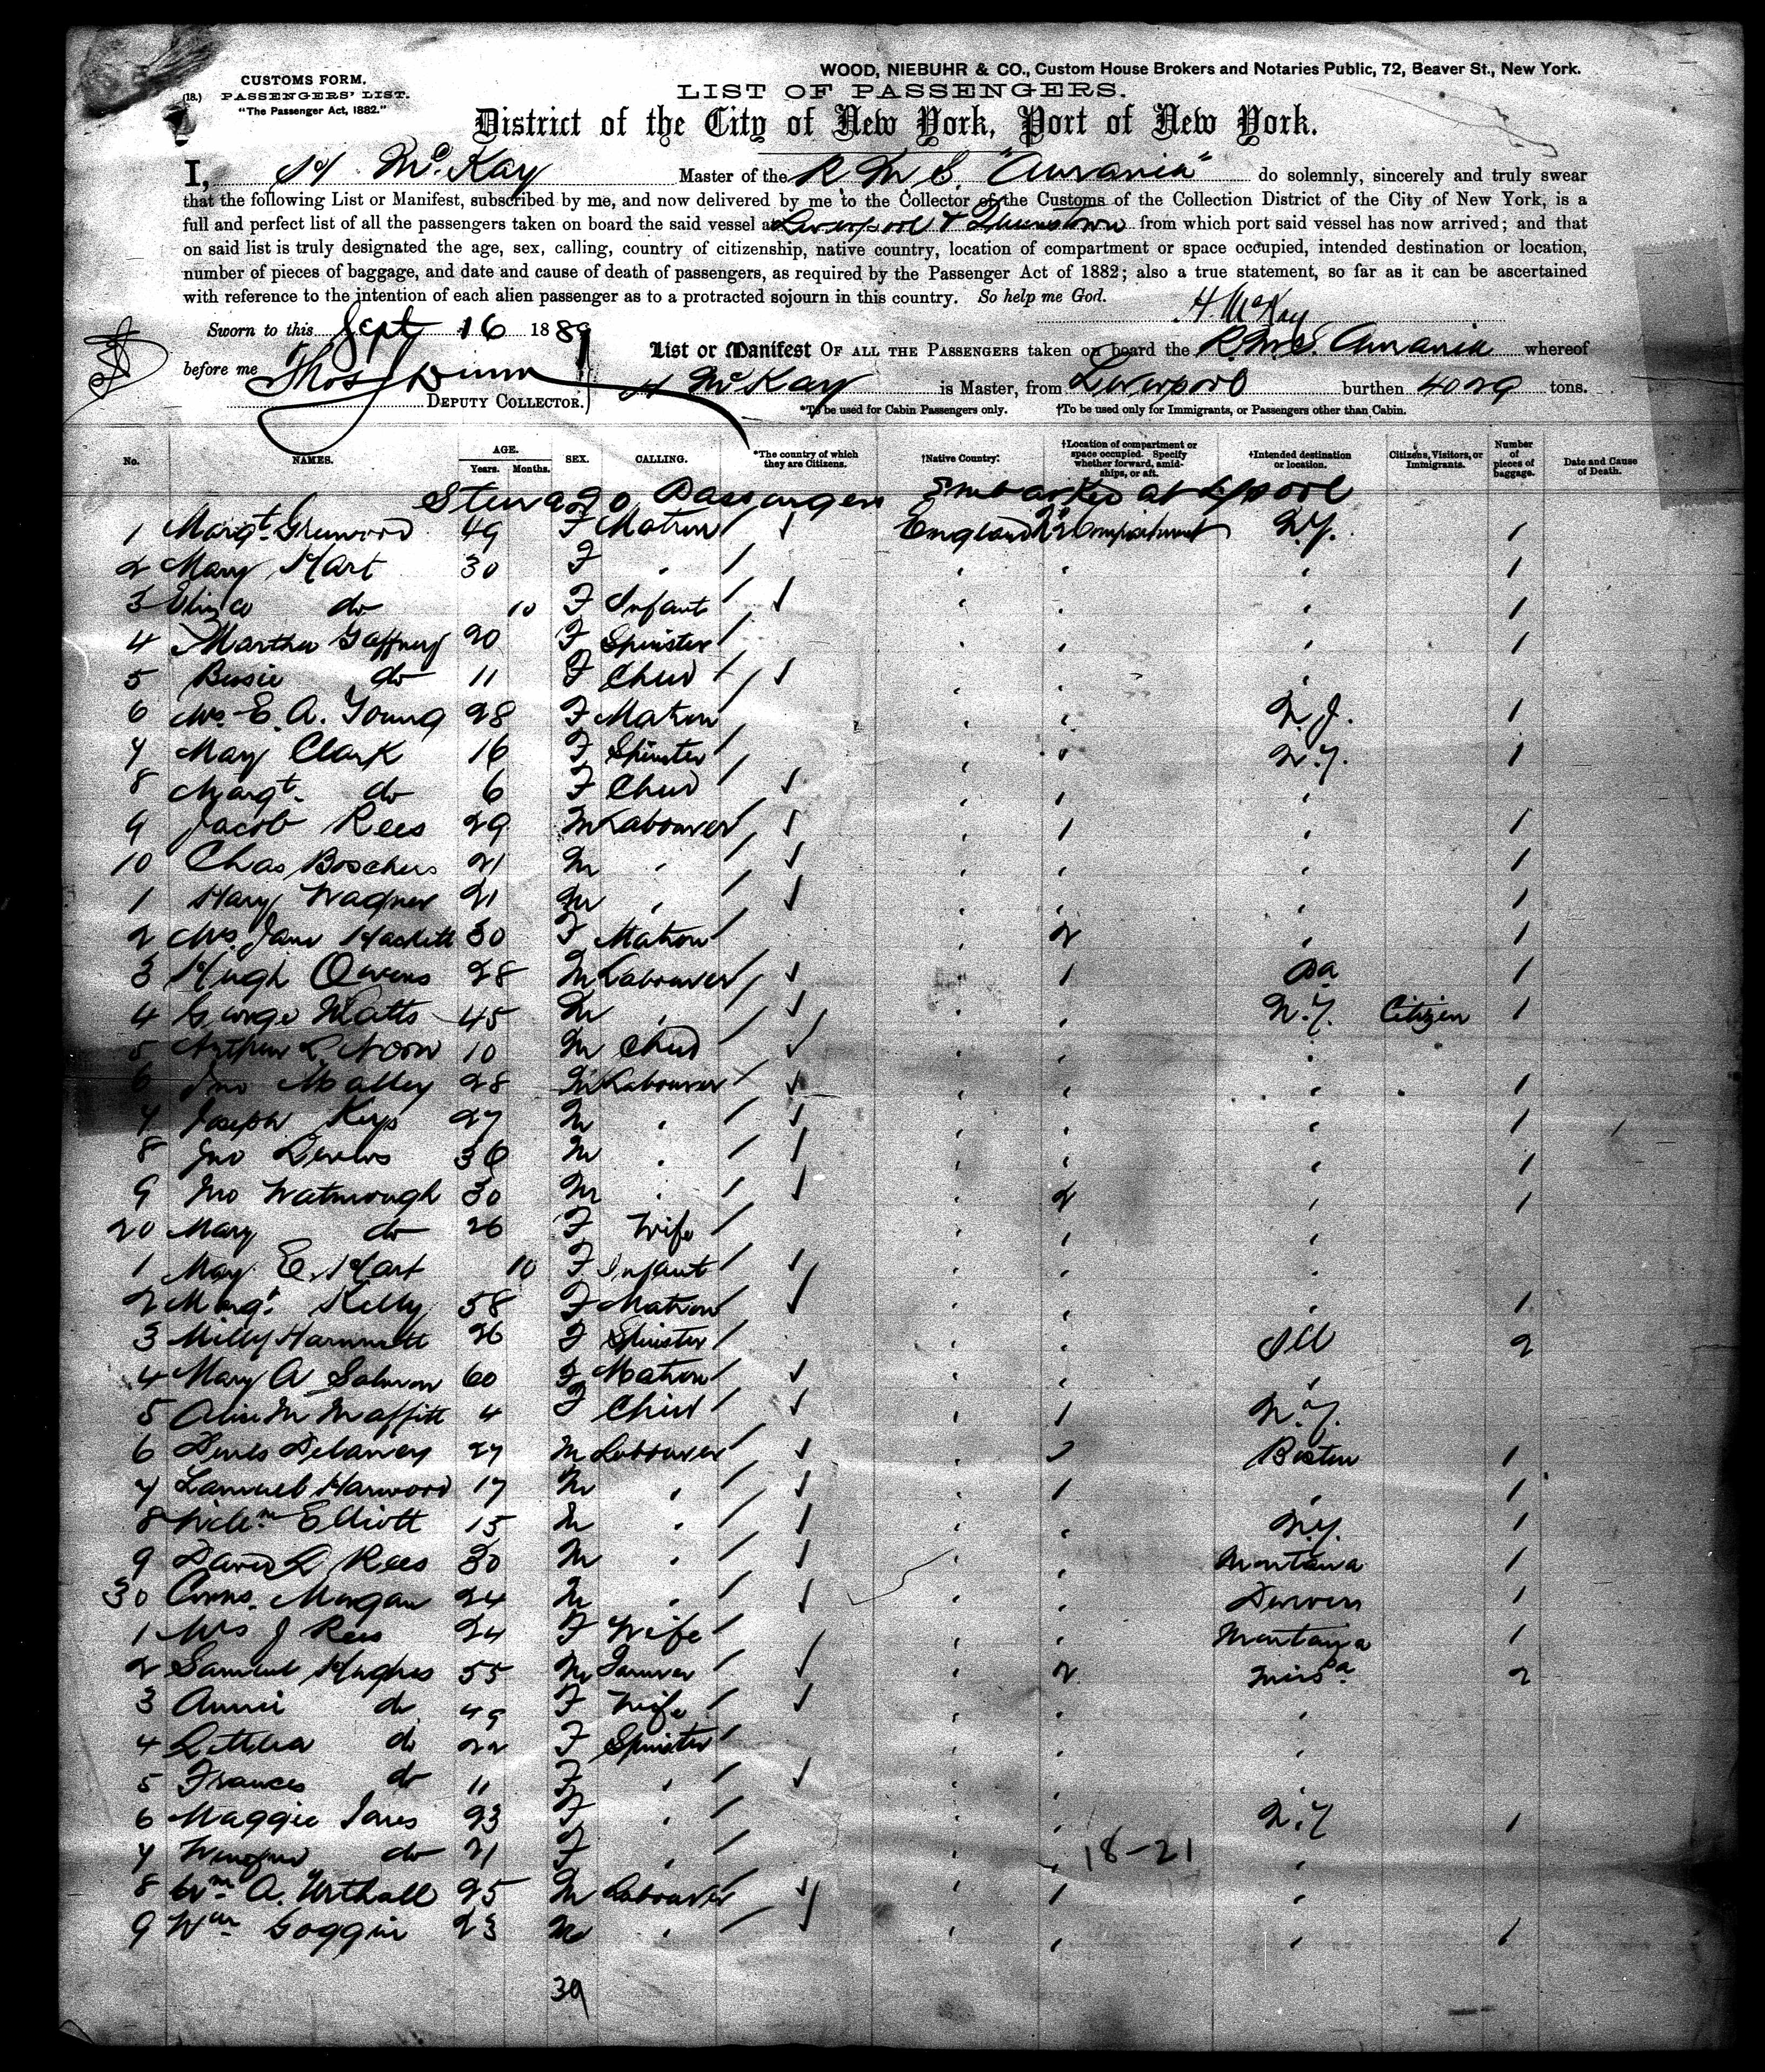 WOOD, NIEBUHR & CO., Custom House Brokers and Notaries Public, 72, Beaver St., New York.
CUSTOMS FORM.
(18.) PASSENGERS' LIST.
"The Passenger Act, 1882."
LIST OF PASSENGERS.
District of the City of New York, Port of New York.
I, H McKay Master of the R.M.S. "Aurania" do solemnly, sincerely and truly swear
that the following List or Manifest, subscribed by me, and now delivered by me to the Collector of the Customs of the Collection District of the City of New York, is a
full and perfect list of all the passengers taken on board the said vessel at Liverpool & Queenstown from which port said vessel has now arrived; and that
on said list is truly designated the age, sex, calling, country of citizenship, native country, location of compartment or space occupied, intended destination or location,
number of pieces of baggage, and date and cause of death of passengers, as required by the Passenger Act of 1882; also a true statement, so far as it can be ascertained
with reference to the intention of each alien passenger as to a protracted sojourn in this country. So help me God.
H McKay
Sworn to this Sept 16 1889
before me Thos Dunn
DEPUTY COLLECTOR.
List or Manifest OF ALL THE PASSENGERS taken on board the R.M.S. Aurania whereof
H McKay is Master, from Liverpool burthen 4029 tons.
*To be used for Cabin Passengers only. †To be used only for Immigrants, or Passengers other than Cabin.
No. NAMES. AGE. Years. Months. SEX. CALLING. *The country of which they are Citizens. †Native Country. †Location of compartment or space occupied. Specify whether forward, amidships, or aft. †Intended destination or location. Citizens, Visitors, or Immigrants. Number of pieces of baggage. Date and Cause of Death.
Steerage Passengers Embarked at L'pool
1 Margt. Greenwood 49 F Matron England Compartment N.Y. 1
2 Mary Hart 30 F " " " " 1
3 do 10 F Infant " " " 1
4 Martha Gaffney 20 F Spinster " " " 1
5 Bessie do 11 F Child " " "
6 Mrs. E. A. Young 28 F Matron " " N.J. 1
7 Mary Clark 16 F Spinster " " N.Y. 1
8 Margt. do 6 F Child " " "
9 Jacob Rees 29 M Labourer " 1 " 1
10 Chas Boschers 21 M " " " " 1
1 Harry Wagner 21 M " " " " 1
2 Mrs. Jane Hackett 30 F Matron " 2 " 1
3 Hugh Owens 28 M Labourer " 1 Pa 1
4 George Watts 45 M " " " N.Y. Citizen 1
5 Arthur L. 10 M Child " " "
6 Jno Malley 28 M Labourer " " " 1
7 Joseph Keys 27 M " " " " 1
8 Jno 36 M " " " " 1
9 Jno Watmough 30 M " " 2 " 1
20 Mary do 26 F Wife " " "
1 May E. Hart 10 F Infant " " "
2 Margt. Kelly 58 F Matron " " " 1
3 Milly Hammett 26 F Spinster " " Ill 2
4 Mary A Salmon 60 F Matron " " "
5 Alice M Maffitt 4 F Child " 1 N.Y.
6 Denis Delaney 27 M Labourer " 2 Boston 1
7 Samuel Harwood 17 M " " 1 " 1
8 Willm Elliott 15 M " " " N.Y. 1
9 David L Rees 30 M " " " Montana 1
30 Morgan 24 M " " " Denver 1
1 Mrs J Rees 24 F Wife " " Montana 1
2 Samuel Hughes 55 M Farmer " 2 2
3 Annie do 49 F Wife " " "
4 Letitia do 22 F Spinster " " "
5 Frances do 11 F " " " "
6 Maggie Jones 23 F " " " N.Y 1
7 do 21 F " " " 18-21 "
8 Wm A. 25 M Labourer " 1 "
9 Wm Goggin 23 M " " " " 1
39